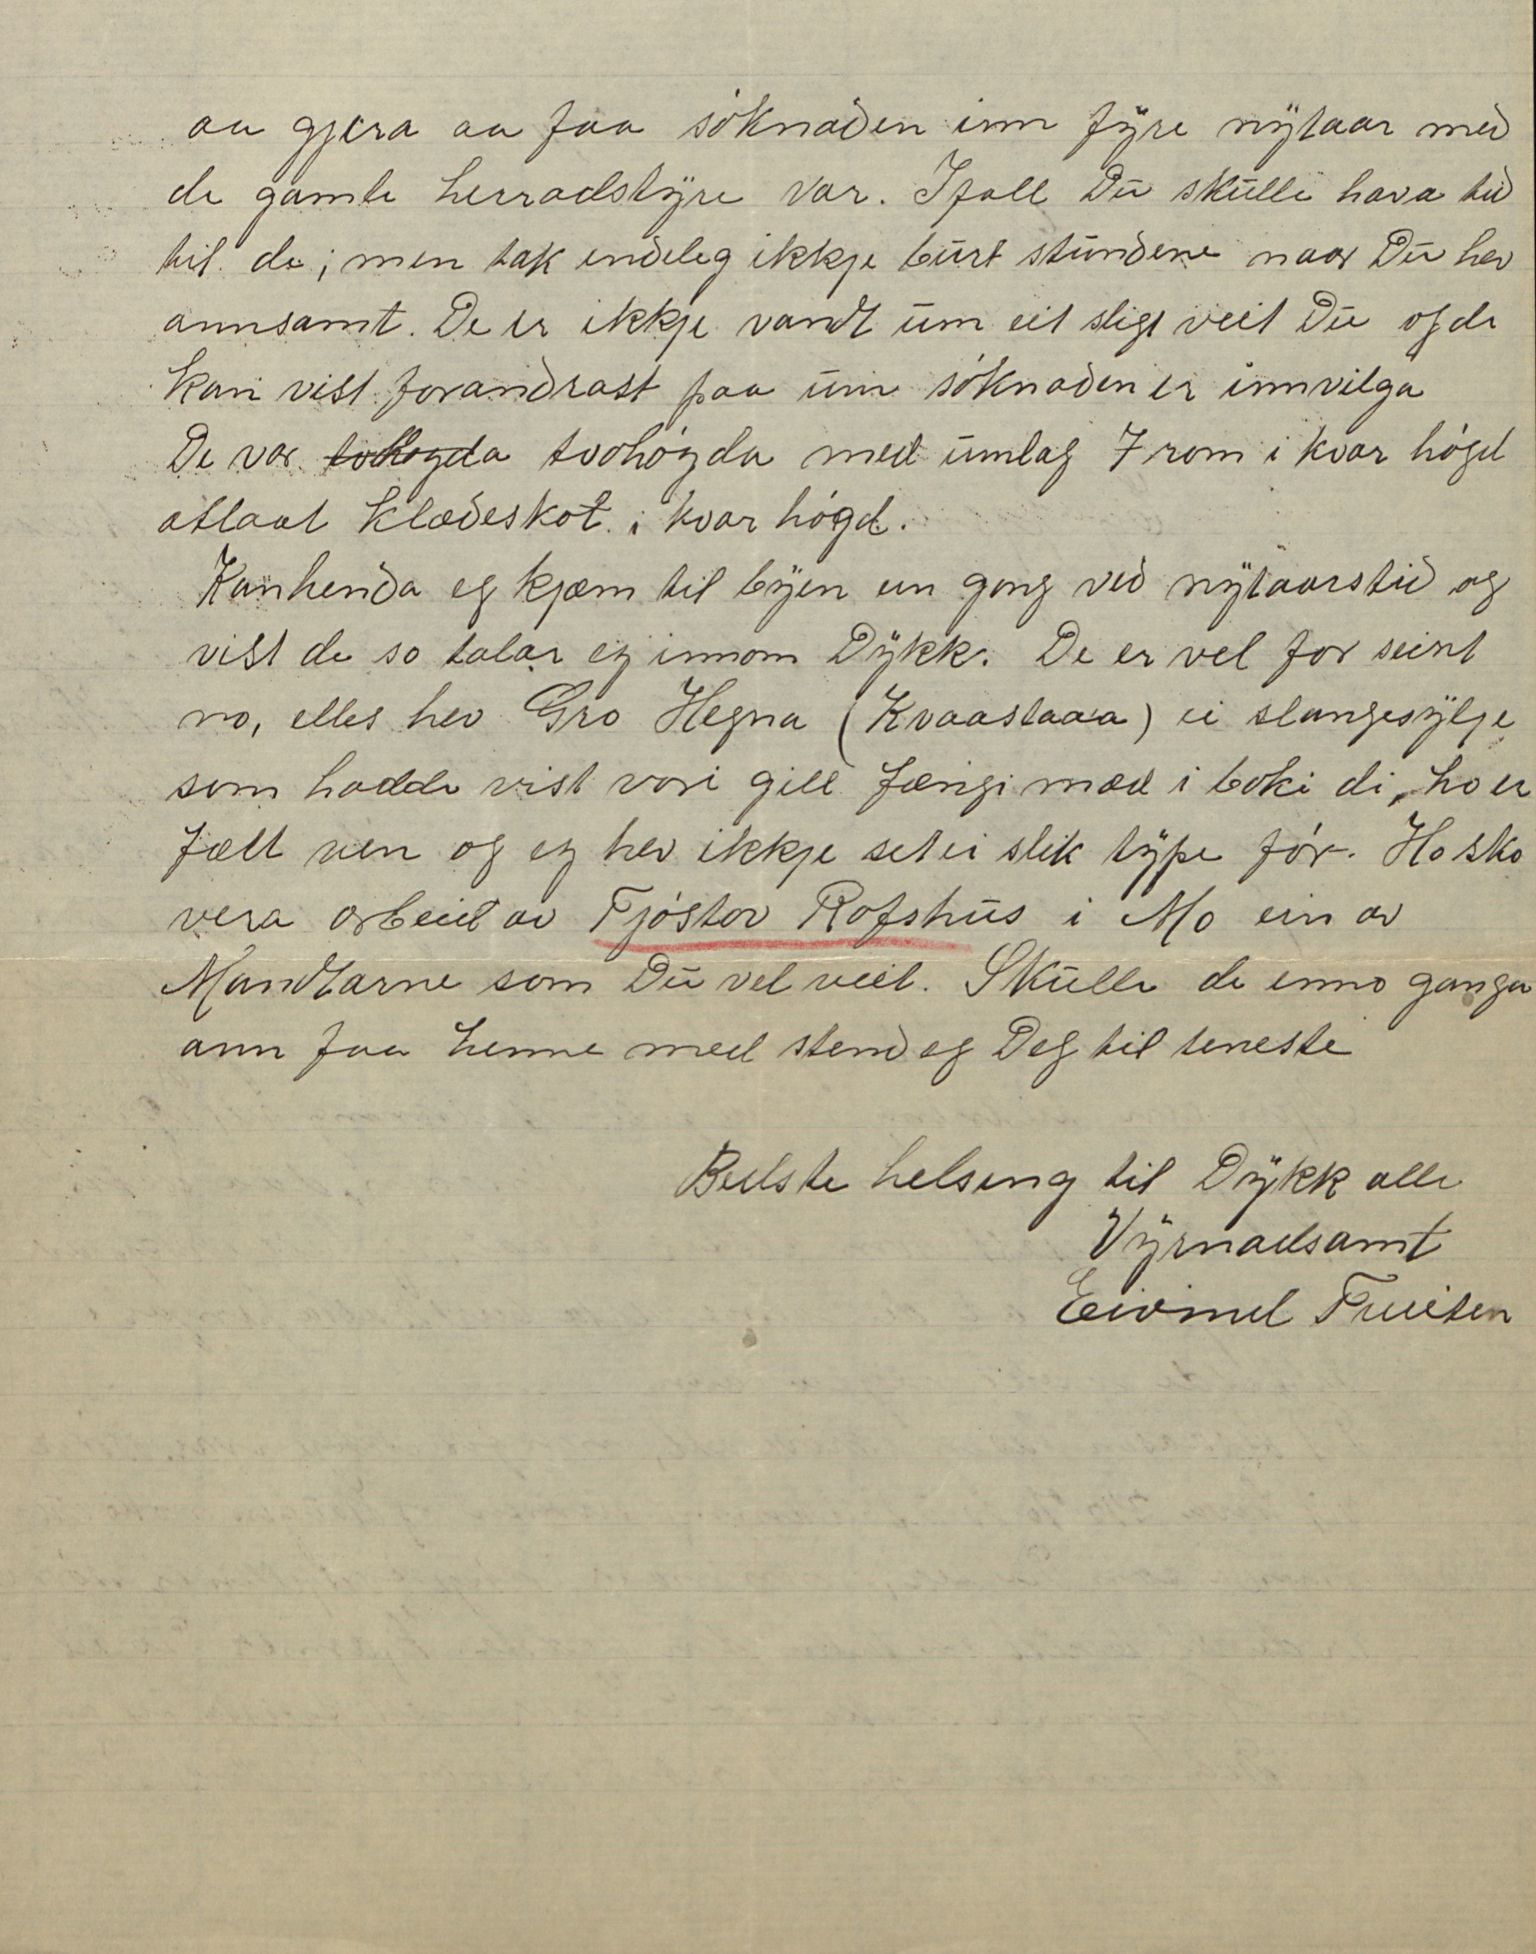 aa gjera aa faa söknaden inn fyre nytaar med
de gamle herradstyre var. Ifall Du skulle hava tid
til de; men tak endeleg ikkje burt stundene naar Du hev
annsamt. De er ikkje vandt um eit sligt veit Du og de
kan vist forandrast paa um söknaden er innvilga
De var tvohögda med umlag 7 rom i kvar högd
attaat klædeskot i kvar högd.
Kanhenda eg kjæm til byen en gong ved nytaarstid og
vist de so talar eg innom Dykk. De er vel for seint
no, elles hev Gro Hegna (Kvaastaaa) ei slangesylje
som hadde vist vori gill fængi med i boki di, ho er
fælt ven og eg hev ikkje set ei slik type för. Ho ska
vera arbeid av Tjöstov Rofshus i Mo ein av
Mandtarne som Du vel veit. Skulle de enno ganga
ann faa henne med stend eg Deg til teneste
Beste helsing til Dykk alle
Vyrnadsamt
Eivind Tveiten